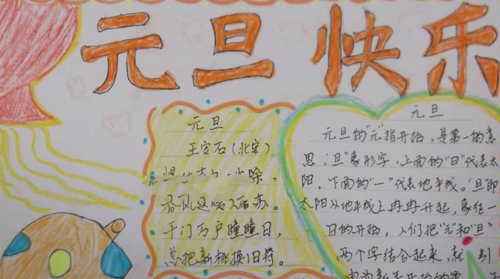 元旦 快乐
元旦
王安石(北宋)
除,
春风送暖入屠苏。
千门万户曈曈日,
总把新桃换旧符。
元旦
元旦的“元”指开始,是第一的意
思,“旦”象形字,上面的“日”代表太
阳,下面的“一”代表地平线。“旦”即
太阳从地平线上冉冉升起,象征一
日的开始。人们把“元”和“旦”
两个字结合起来,就引